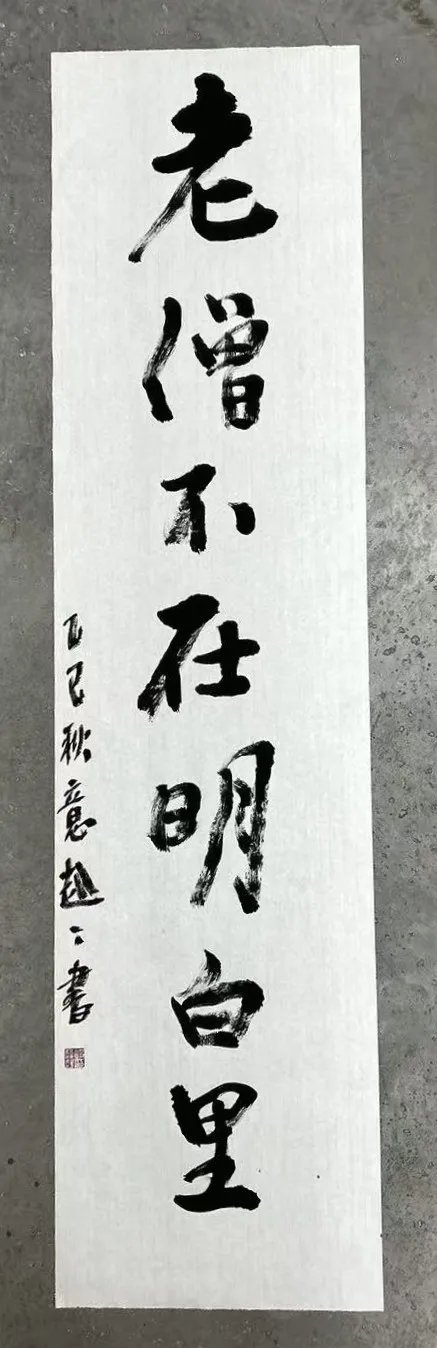 老僧不在明白里
乙巳秋意赵〻書